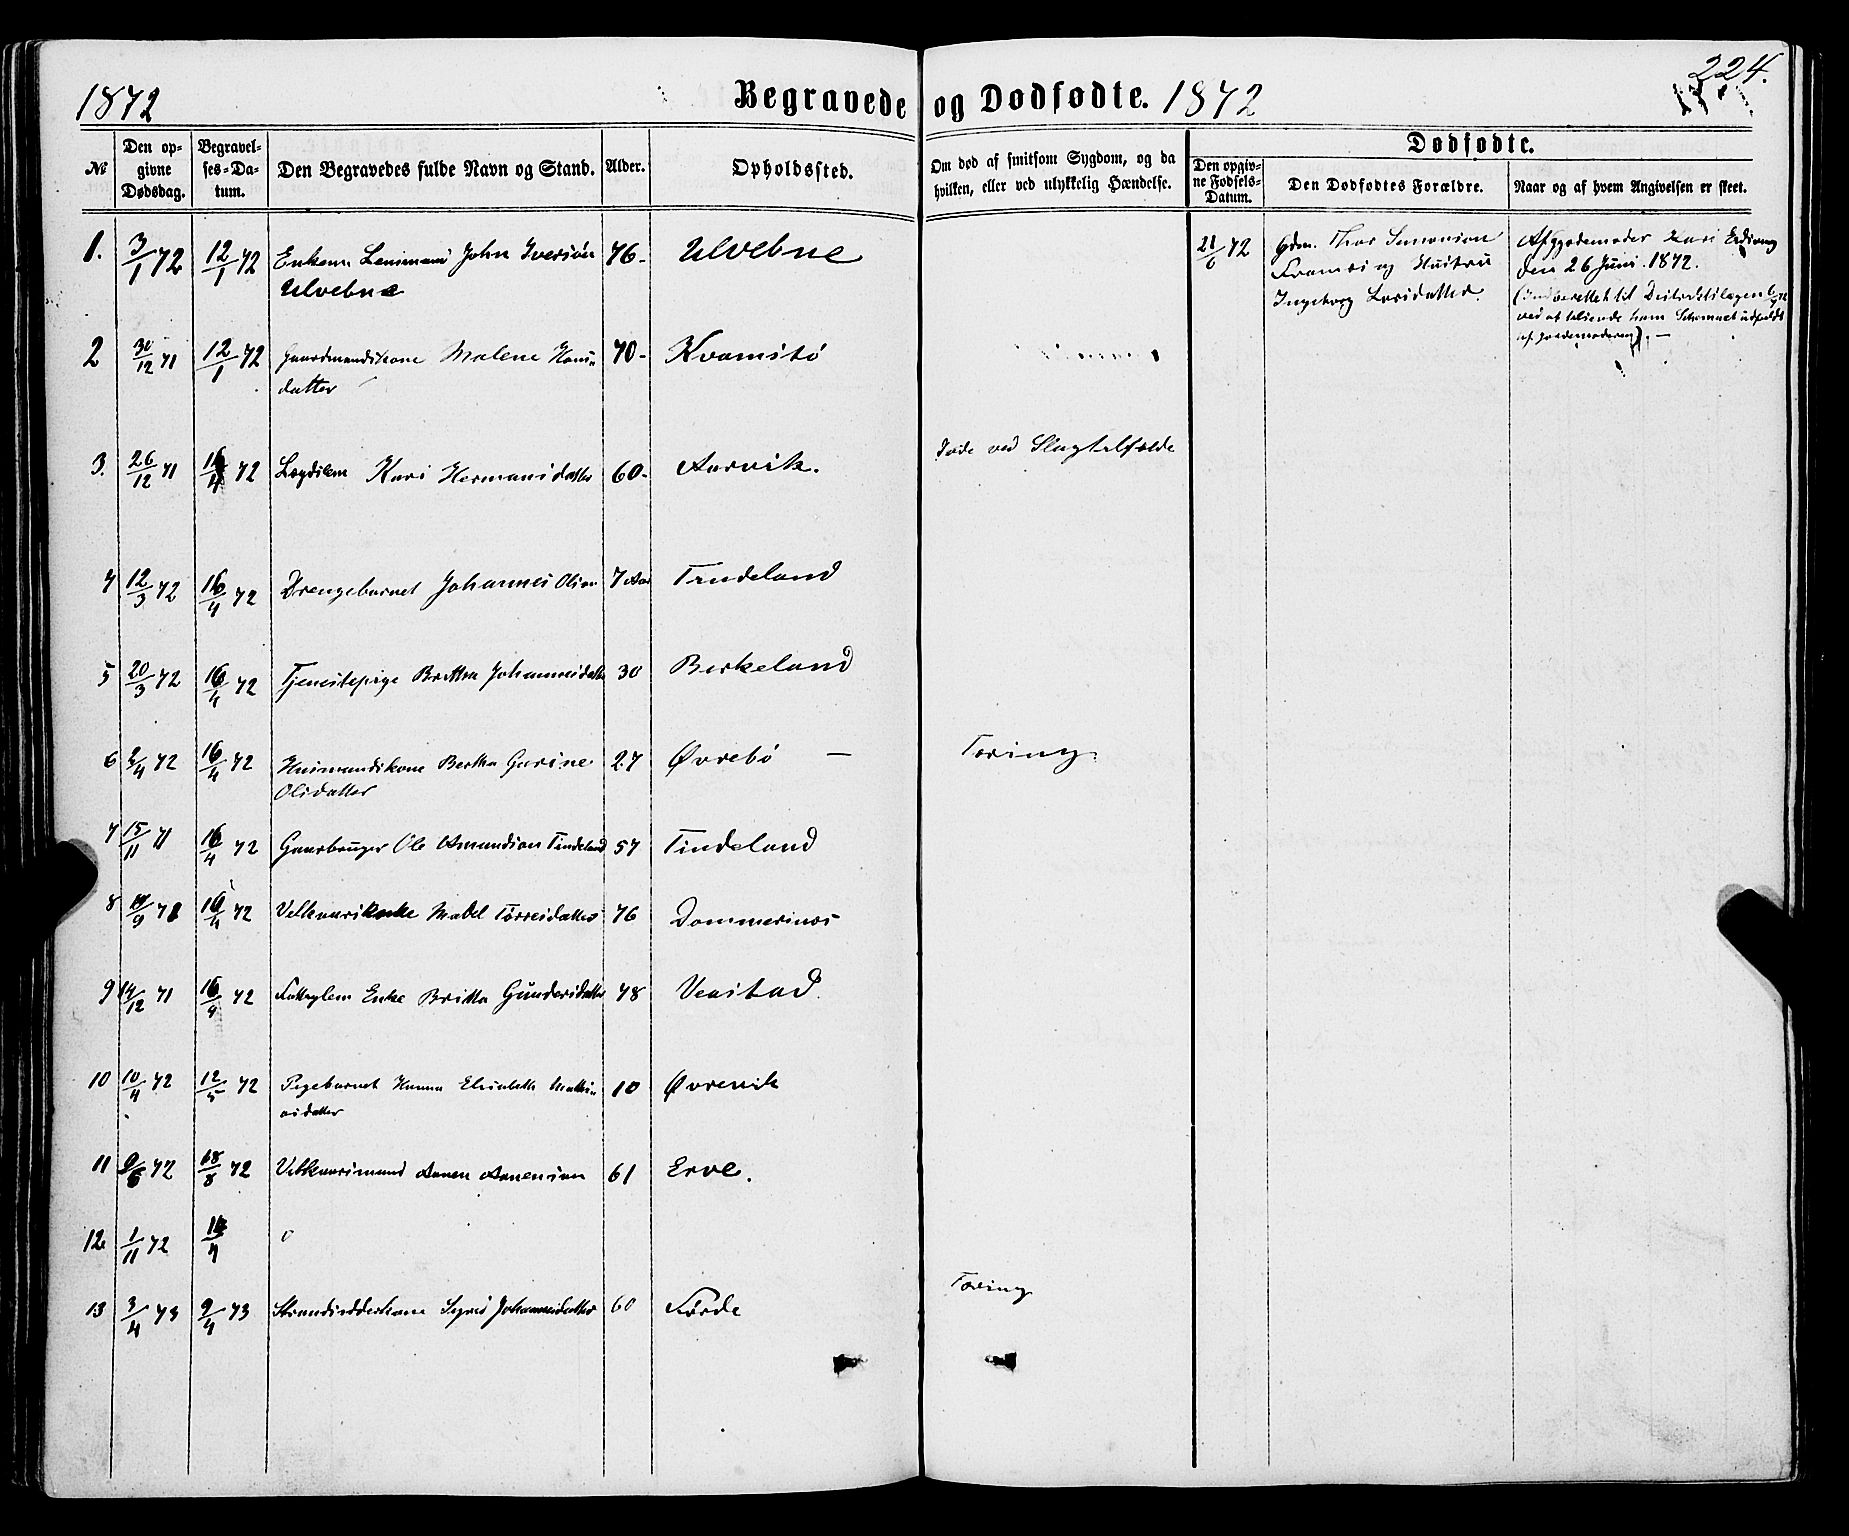 224.
1872
Begravede og Dødfødte. 1872
№
Den op-
givne
Dødsdag.
Begravel-
ses-Da-
tum.
Den Begravedes fulde Navn og Stand.
Alder.
Opholdssted.
Om død af smitsom Sygdom, og da
hvilken, eller ved ulykkelig Hændelse.
Dødfødte.
Den opgiv-
ne Fødsels-
Datum.
Den Dødfødtes Forældre.
Naar og af hvem Angivelsen er skeet.
1. 3/1 72 12/1 72 Enkem. Lensmand John Iversøn 76- Ulvebne
Ulvebne
21/6 72 Gdm. Thor Simonsen
og Hustru
Ingeborg Larsdatter.
Af Gjordemoder Kari
den 26 Juni. 1872.
(Indberettet til
ved at tilsende ham Schemaet udfyldt
af Jordemoderen). —
2 30/12 71 12/1 72 Gaardmandskone Malene Hans- 70- Kvamstø
datter
3. 26/12 71 16/4 72 Lægdslem Kari Hermansdatter 60- Aarvik. Døde ved Slagtilfælde
4 12/3 72 16/4 72 Drengebarnet Johannes Olsen 7 Aar
5 20/3 72 16/4 72 Tjenestepige Brittha Johannesdatter 30 Berkeland
6 2/4 72 16/4 72 Husmandskone Bertha Gurine 27 Øvrebø — Tæring
Olsdatter
7 15/11 71 16/4 72 Gaarbruger Ole Amundsen Tindeland 57 Tindeland
8 71 16/4 72 Mabel Tørresdatter 76 Dommersnæs
9 14/12 71 16/4 72 Fattiglem Enke Britta Gundersdatter 78 Vestad.
10 10/4 72 12/5 72 Pigebarnet Hanna Elisabeth Mathi- 10 Øvrevik
asdatter
11 72 18/8 72 Velkaarsmand Aanen Aanensen 61 Erve.
12. 1/11 72
13 3/4 73 9/4 73 Strandsidderkone Johannesdatter 60 Førde Tæring